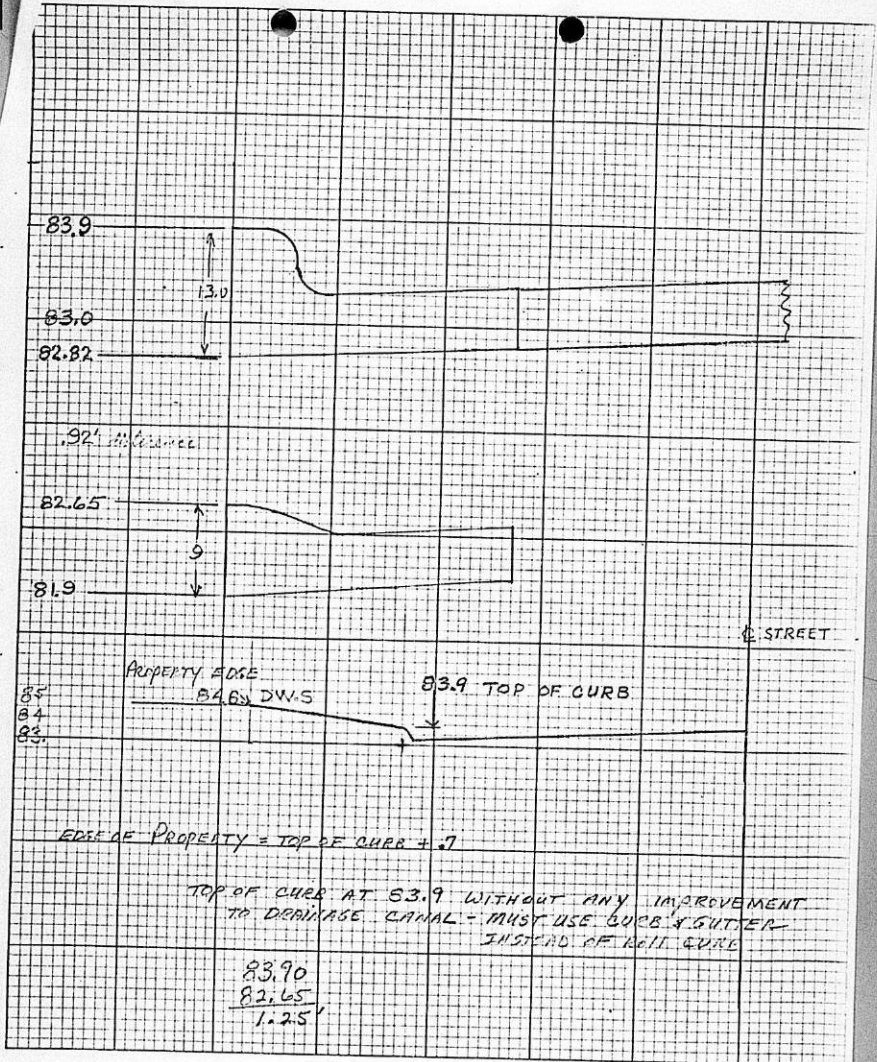 83.9
13.0
83.0
82.82
.92'
82.65
9
81.9
℄ STREET
PROPERTY EDGE
84.6 DWS
83.9 TOP OF CURB
85
84
83.
EDGE OF PROPERTY = TOP OF CURB + .7
TOP OF CURB AT 83.9 WITHOUT ANY IMPROVEMENT
TO DRAINAGE CANAL - MUST USE CURB & GUTTER
INSTEAD OF ROLL CURB
83.90
82.65
1.25'